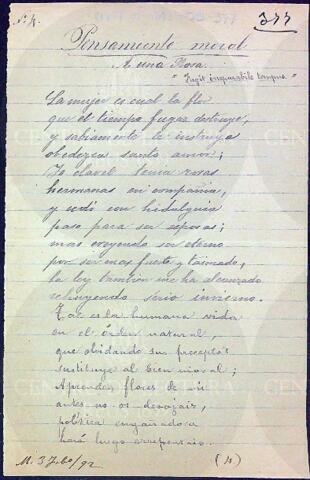 N. 4.
377
Pensamiento moral
A una Rosa.
"Fugit irreparabile tempus"
La mujer es cual la flor
que el tiempo fugaz destruye,
y sabiamente le instruye
obedezca santo amor;
Yo clavel tenía rosas
hermanas en compañía,
y cedí con hidalguía
paso para ser esposas;
mas creyendo ser eterno
por ser mas fuerte y taimado,
la ley tambien me ha alcanzado
recluyendo serio invierno.
Tal es la humana vida
en el orden natural,
que olvidando sus preceptos
sustituye al bien moral;
Aprended flores de mi
antes no os deshojais,
política engañadora
hará luego arrepentiros.
M. 3 Feb/92
(4)